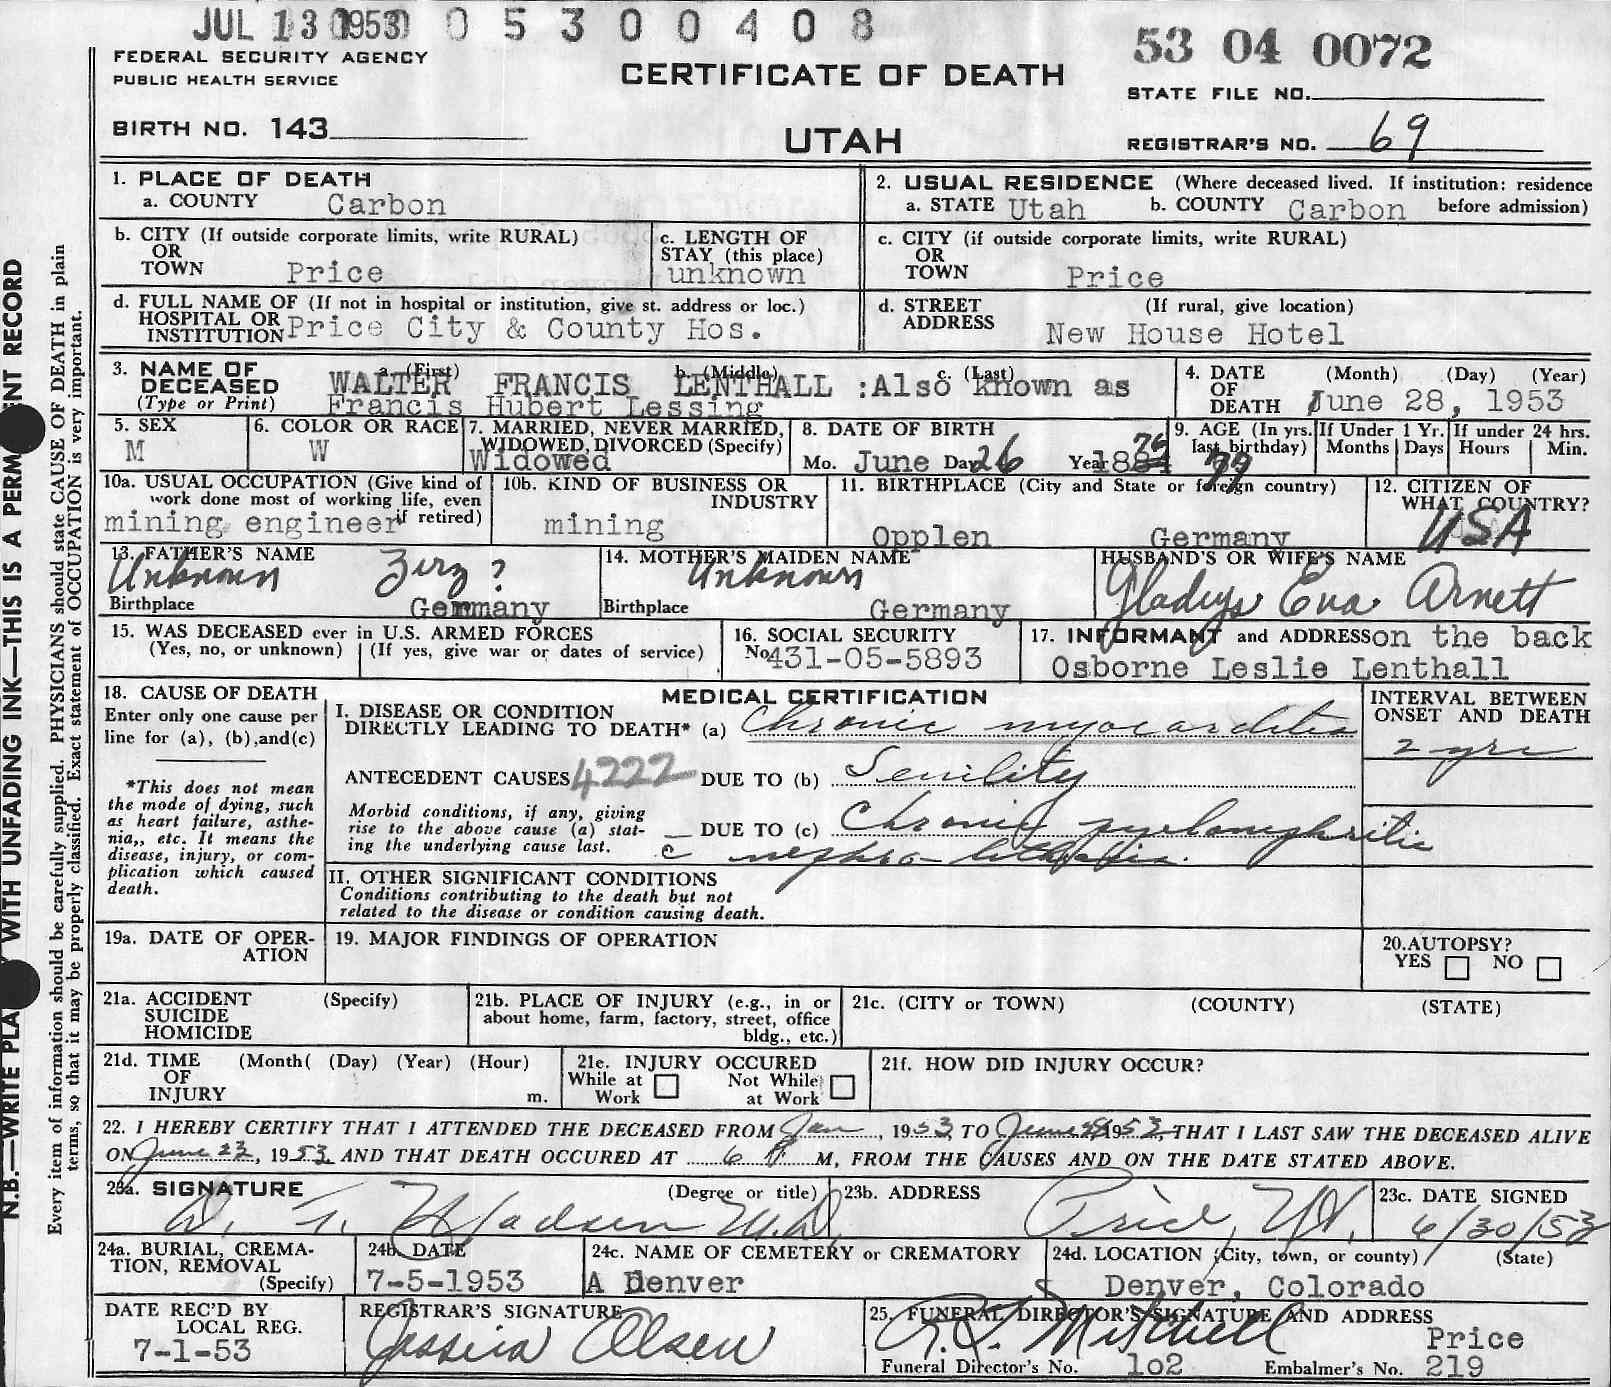 JUL 13 1953 0 5 3 0 0 4 0 8
53 04 0072
FEDERAL SECURITY AGENCY
PUBLIC HEALTH SERVICE
CERTIFICATE OF DEATH
STATE FILE NO.
BIRTH NO. 143
UTAH
REGISTRAR'S NO. 69
1. PLACE OF DEATH
a. COUNTY Carbon
2. USUAL RESIDENCE (Where deceased lived. If institution: residence
a. STATE Utah b. COUNTY Carbon before admission)
b. CITY (If outside corporate limits, write RURAL)
OR
TOWN Price
c. LENGTH OF
STAY (this place)
unknown
c. CITY (if outside corporate limits, write RURAL)
OR
TOWN Price
d. FULL NAME OF (If not in hospital or institution, give st. address or loc.)
HOSPITAL OR
INSTITUTION Price City & County Hos.
d. STREET (If rural, give location)
ADDRESS New House Hotel
3. NAME OF
DECEASED
(Type or Print)
a. (First) b. (Middle) c. (Last)
WALTER FRANCIS LENTHALL :Also known as
Francis Hubert Lessing
4. DATE (Month) (Day) (Year)
OF
DEATH June 28, 1953
5. SEX
M
6. COLOR OR RACE
W
7. MARRIED, NEVER MARRIED,
WIDOWED, DIVORCED (Specify)
Widowed
8. DATE OF BIRTH
Mo. June Day 26 Year 1884 76
9. AGE (In yrs.
last birthday) 77
If Under 1 Yr.
Months Days
If under 24 hrs.
Hours Min.
10a. USUAL OCCUPATION (Give kind of
work done most of working life, even
if retired)
mining engineer
10b. KIND OF BUSINESS OR
INDUSTRY
mining
11. BIRTHPLACE (City and State or foreign country)
Opplen Germany
12. CITIZEN OF
WHAT COUNTRY?
USA
13. FATHER'S NAME
Unknown Zerz?
Birthplace Germany
14. MOTHER'S MAIDEN NAME
Unknown
Birthplace Germany
HUSBAND'S OR WIFE'S NAME
Gladys Eva Arnett
15. WAS DECEASED ever in U.S. ARMED FORCES
(Yes, no, or unknown) (If yes, give war or dates of service)
16. SOCIAL SECURITY
No 431-05-5893
17. INFORMANT and ADDRESS on the back
Osborne Leslie Lenthall
18. CAUSE OF DEATH
Enter only one cause per
line for (a), (b), and (c)
*This does not mean
the mode of dying, such
as heart failure, asthe-
nia,, etc. It means the
disease, injury, or com-
plication which caused
death.
MEDICAL CERTIFICATION
I. DISEASE OR CONDITION
DIRECTLY LEADING TO DEATH* (a) Chronic myocarditis
ANTECEDENT CAUSES 4222 DUE TO (b) Senility
Morbid conditions, if any, giving
rise to the above cause (a) stat-
ing the underlying cause last.
DUE TO (c) Chronic pyelonephritic
c nephro-lithiasis.
INTERVAL BETWEEN
ONSET AND DEATH
2 yrs
II. OTHER SIGNIFICANT CONDITIONS
Conditions contributing to the death but not
related to the disease or condition causing death.
19a. DATE OF OPER-
ATION
19. MAJOR FINDINGS OF OPERATION
20. AUTOPSY?
YES NO
21a. ACCIDENT (Specify)
SUICIDE
HOMICIDE
21b. PLACE OF INJURY (e.g., in or
about home, farm, factory, street, office
bldg., etc.)
21c. (CITY or TOWN) (COUNTY) (STATE)
21d. TIME (Month( (Day) (Year) (Hour)
OF
INJURY m.
21e. INJURY OCCURED
While at Work
Not While at Work
21f. HOW DID INJURY OCCUR?
22. I HEREBY CERTIFY THAT I ATTENDED THE DECEASED FROM Jan, 1953, TO June 28 1953, THAT I LAST SAW THE DECEASED ALIVE
ON June 23, 1953 AND THAT DEATH OCCURED AT 6 P M, FROM THE CAUSES AND ON THE DATE STATED ABOVE.
23a. SIGNATURE (Degree or title)
Madsen M.D.
23b. ADDRESS
Price, Ut.
23c. DATE SIGNED
6/30/53
24a. BURIAL, CREMA-
TION, REMOVAL
(Specify)
24b. DATE
7-5-1953
24c. NAME OF CEMETERY or CREMATORY
A Denver
24d. LOCATION (City, town, or county) (State)
Denver, Colorado
DATE REC'D BY
LOCAL REG.
7-1-53
REGISTRAR'S SIGNATURE
Jessica Olsen
25. FUNERAL DIRECTOR'S SIGNATURE AND ADDRESS
Mitchell Price
Funeral Director's No. 102 Embalmer's No. 219
N.B.—WRITE PLA WITH UNFADING INK—THIS IS A PERM ENT RECORD
Every item of information should be carefully supplied. PHYSICIANS should state CAUSE OF DEATH in plain
terms, so that it may be properly classified. Exact statement of OCCUPATION is very important.